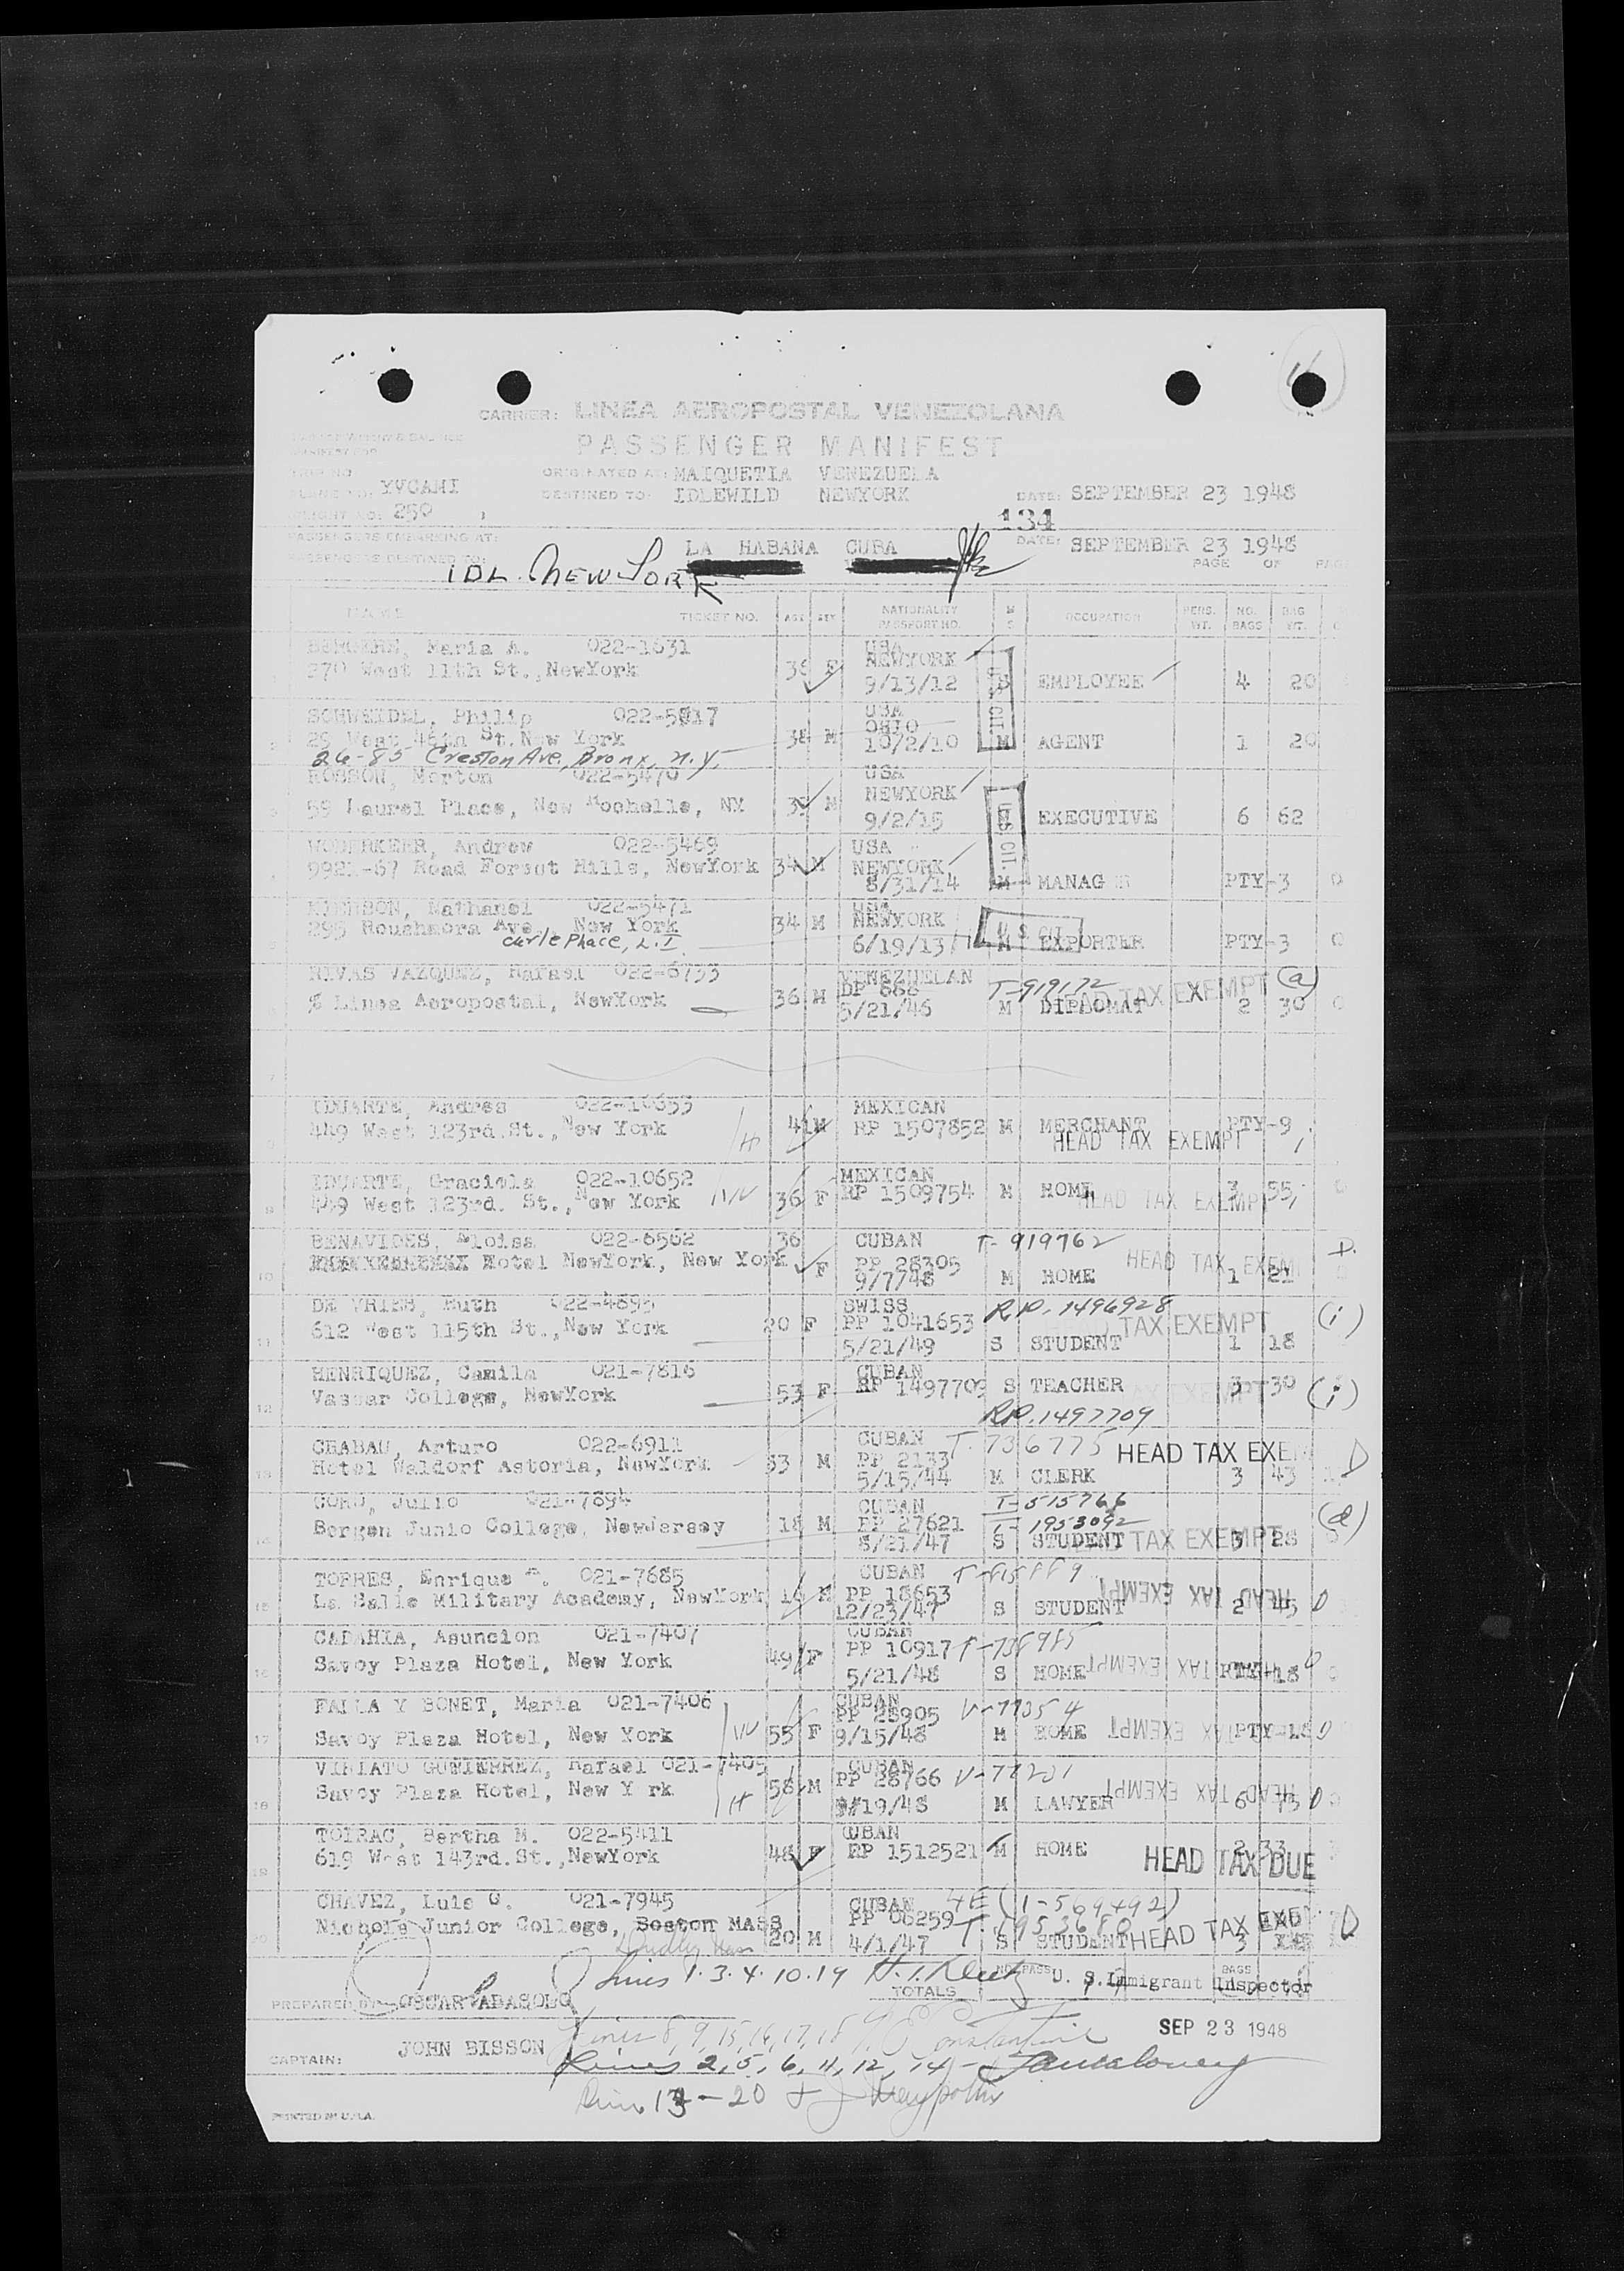 16
CARRIER: LINEA AEROPOSTAL VENEZOLANA
PASSENGER MANIFEST
ORIGINATED AT: MAIQUETIA VENEZUELA
PLANE NO. YVCAHI
DESTINED TO: IDLEWILD NEWYORK DATE: SEPTEMBER 23 1948
FLIGHT NO: 250
134
PASSENGERS EMBARKING AT: LA HABANA CUBA DATE: SEPTEMBER 23 1948
PASSENGERS DESTINED TO: IDL. NEW YORK PAGE OF
NAME TICKET NO. AGE SEX NATIONALITY PASSPORT NO. M S OCCUPATION PERS. WT. NO. BAGS BAG WT.
Maria A. 022-1631 USA
270 West 11th St., NewYork 36 F NEWYORK
9/13/12 S EMPLOYEE 4 20
U.S. CIT.
SCHWEIDEL, Philip 022-5917 USA
29 West 46th St. New York 38 M OHIO
10/2/10 M AGENT 1 20
26-85 Creston Ave., Bronx, N.Y.
ROSSON, Morton 022-5470 USA
59 Laurel Place, New Rochelle, NY M NEWYORK
9/2/15 EXECUTIVE 6 62
U.S. CIT.
Andrew 022-5469 USA
9921-67 Road Forest Hills, NewYork 34 M NEWYORK
8/31/14 M MANAG PTY-3
Nathanel 022-5471 USA
295 Roushmora Ave., New York 34 M NEWYORK
Carle Place, L.I. 6/19/13 M EXPORTER PTY-3
U S CIT
RIVAS VAZQUEZ, Rafael 022-6733 VENEZUELAN
% Linea Aeropostal, NewYork 36 M DP 668 T-919172 HEAD TAX EXEMPT (a)
5/21/46 M DIPLOMAT 2 30
Andres 022-10653 MEXICAN
449 West 123rd.St., New York H 41 M RP 1507852 M MERCHANT PTY-9
HEAD TAX EXEMPT
Graciela 022-10652 MEXICAN
449 West 123rd. St., New York W 36 F RP 1509754 M HOME 3 55
HEAD TAX EXEMPT
BENAVIDES, Eloisa 022-6562 36 CUBAN T-919762
Hotel NewYork, New York F PP 28305 HEAD TAX EXEM D.
9/7/48 M HOME 1 21
DE VRIES, Ruth 022-4695 SWISS RP. 1496928
612 West 115th St., New York 20 F PP 1041653 HEAD TAX EXEMPT (i)
5/21/49 S STUDENT 1 18
HENRIQUEZ, Camila 021-7816 CUBAN
Vassar College, NewYork 53 F RP 1497709 S TEACHER 3 30 (i)
RP. 1497709 TAX EXEMPT
CHABAU, Arturo 022-6911 CUBAN T. 736775 HEAD TAX EXE D
Hotel Waldorf Astoria, NewYork 33 M PP 2133
5/15/44 M CLERK 3 43
Julio 021-7894 CUBAN T-515766
Bergen Junio College, NewJersey 18 M PP 27621 T-1953092 (a)
8/21/47 S STUDENT HEAD TAX EXEMPT 3 28
TORRES, Enrique 021-7685 CUBAN
La Salle Military Academy, NewYork 16 M PP 18653 HEAD TAX EXEMPT
12/23/47 S STUDENT 2 45 D
CADAHIA, Asuncion 021-7407 CUBAN
Savoy Plaza Hotel, New York 49 F PP 10917 T-738985
5/21/48 S HOME HEAD TAX EXEMPT PTY-18 D
FALLA Y BONET, Maria 021-7406 CUBAN
Savoy Plaza Hotel, New York W 55 F PP 28905 V-77354
9/15/48 M HOME HEAD TAX EXEMPT PTY-18 D
VIRIATO GUTIERREZ, Rafael 021-7405 CUBAN
Savoy Plaza Hotel, New Y rk H 58 M PP 28766
19/48 M LAWYER HEAD TAX EXEMPT 6 D
TOIRAC, Bertha M. 022-5411 CUBAN
619 West 143rd.St., NewYork 48 F RP 1512521 M HOME 2 33
HEAD TAX DUE
CHAVEZ, Luis G. 021-7945 CUBAN 4E (1-569492)
Nichols Junior College, Boston MASS 20 M PP 06259 T. 1953680 HEAD TAX EXE D
Dudley Mass 4/1/47 S STUDENT 3
Lines 1.3.4.10.19 U. S. Immigrant Inspector
TOTALS NO. PASS. BAGS
PREPARED BY: OSCAR ABASOLO
Lines 8, 9, 15, 16, 17, 18 SEP 23 1948
CAPTAIN: JOHN BISSON
Lines 2, 5, 6, 11, 12, 14-
13-20
PRINTED IN U.S.A.